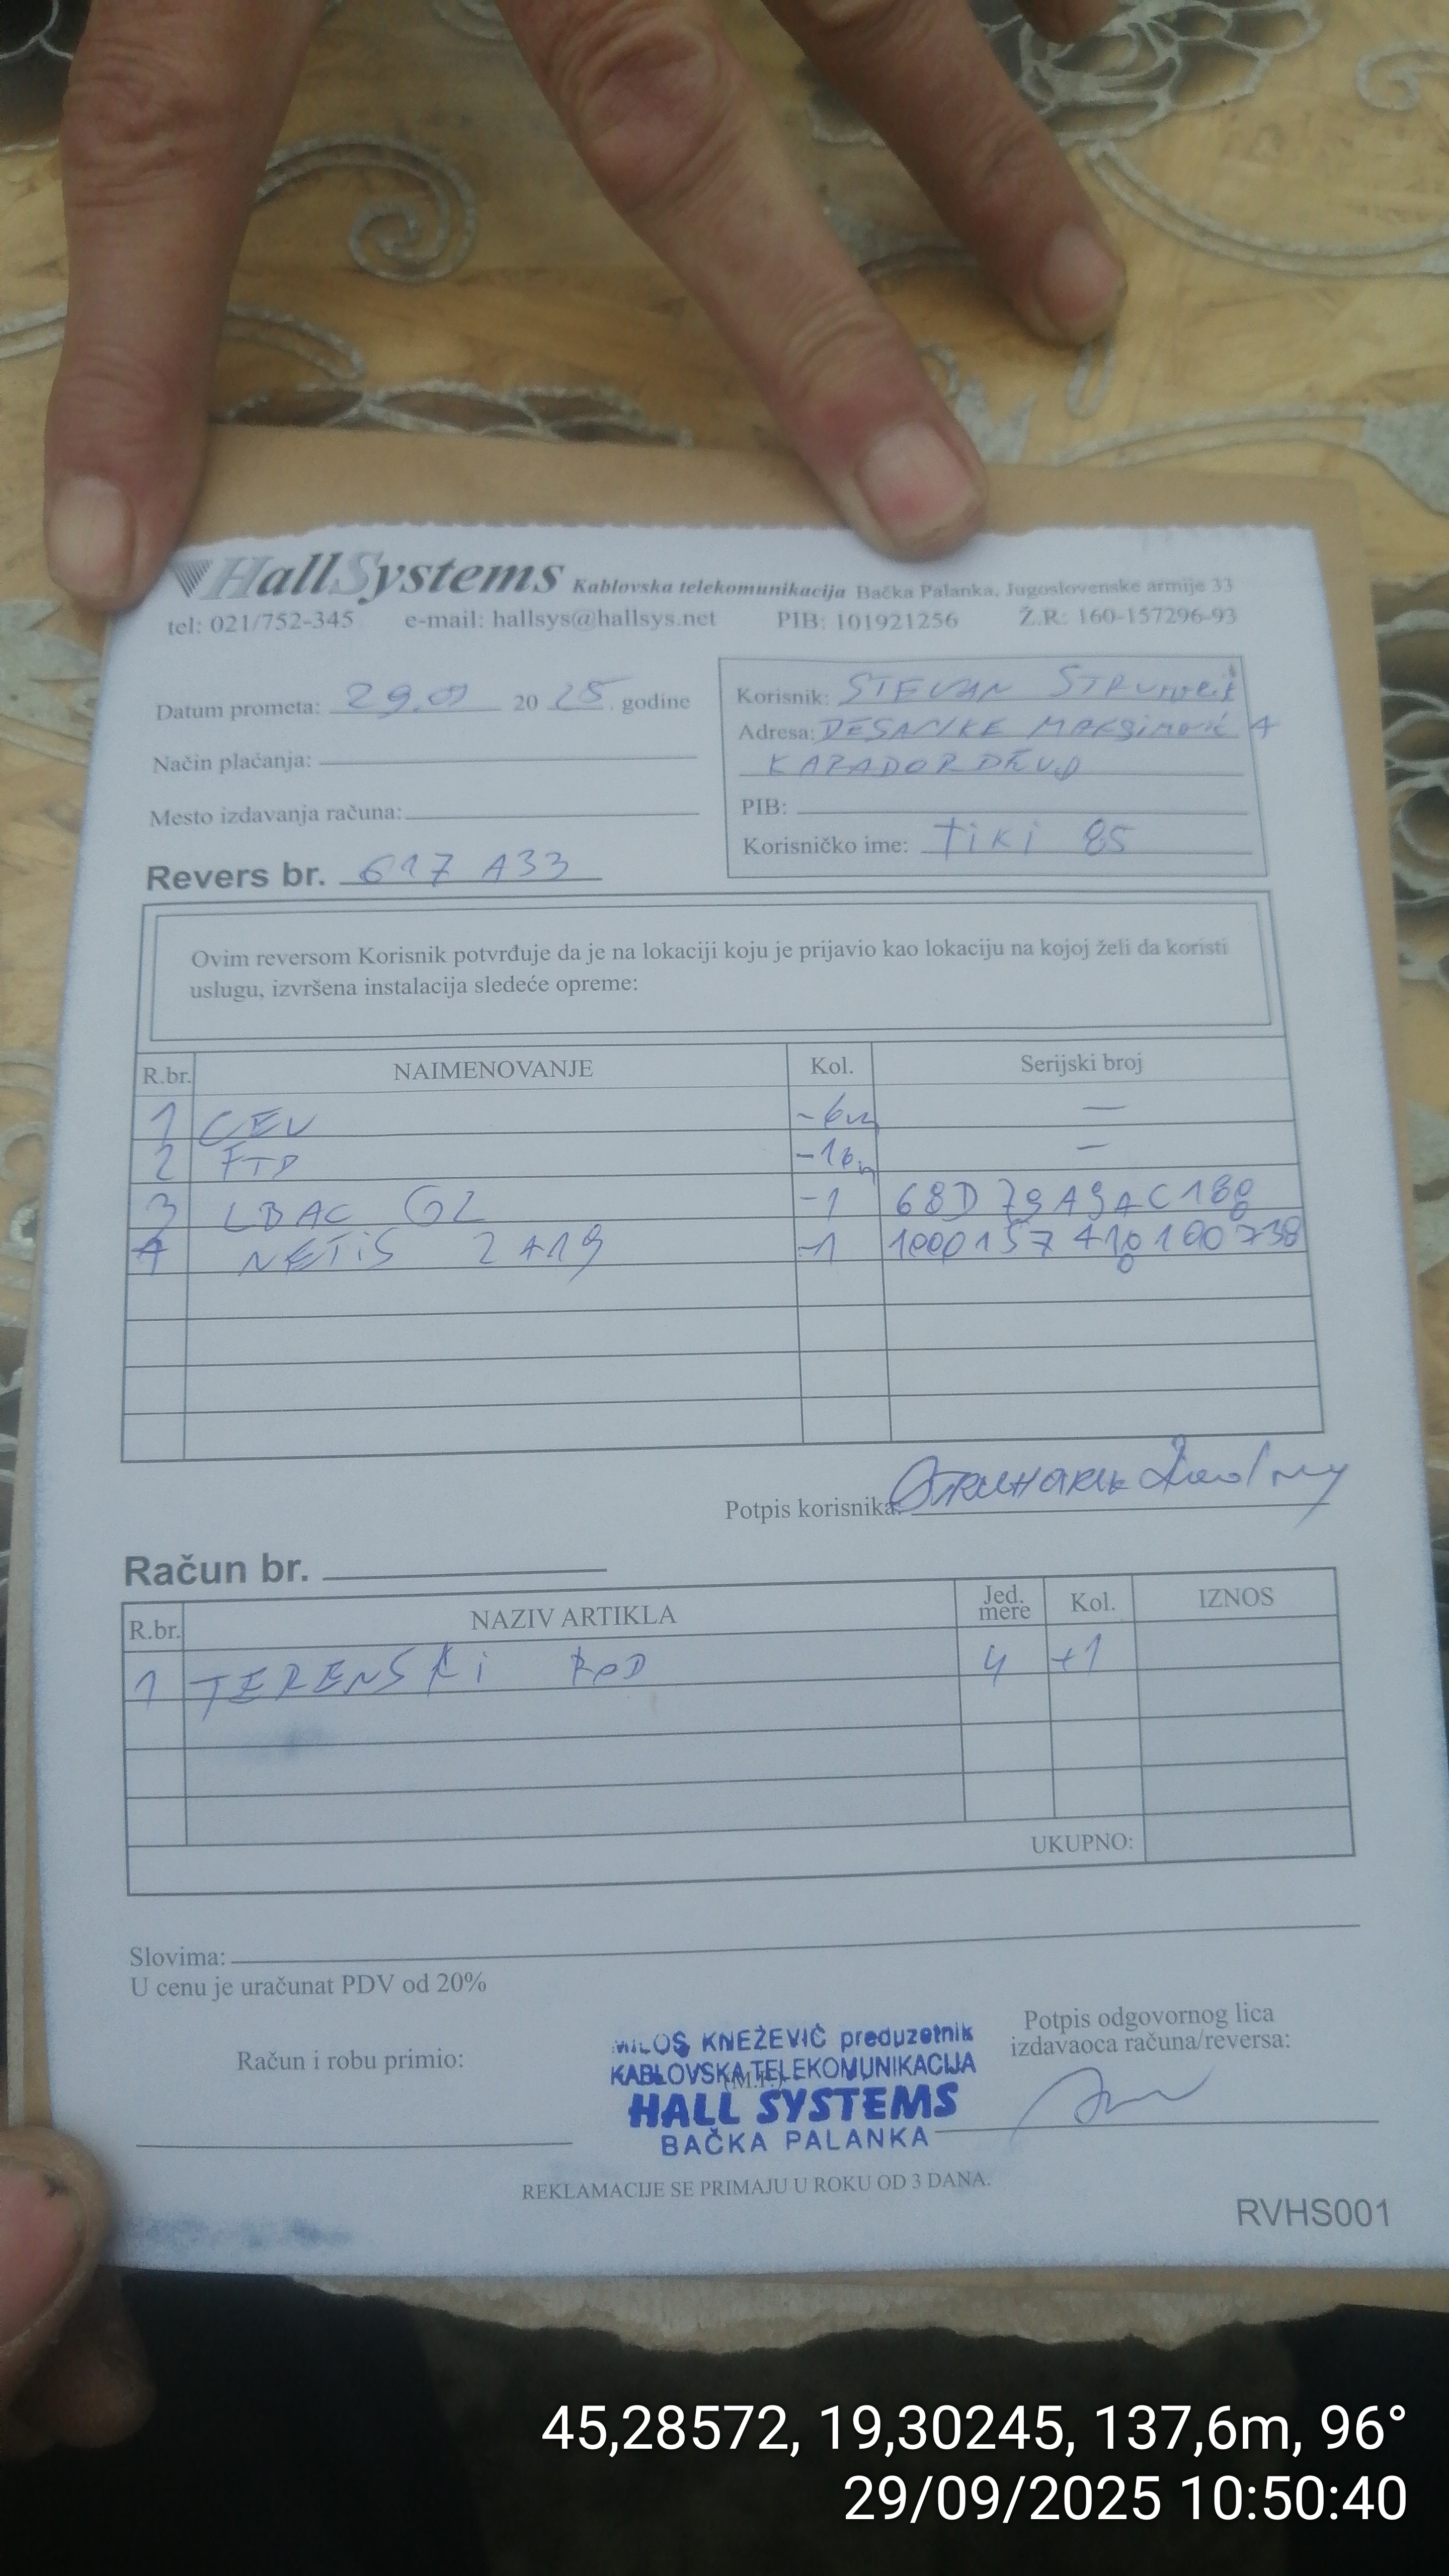 HallSystems Kablovska telekomunikacija Bačka Palanka, Jugoslovenske armije 33
tel: 021/752-345 e-mail: hallsys@hallsys.net PIB: 101921256 Ž.R: 160-157296-93
Datum prometa: 29.09 20 25. godine
Način plaćanja:
Mesto izdavanja računa:
Revers br. 617 A33
Korisnik: STEVAN
Adresa: DESANKE MAKSimović 4
KARAĐORĐEVO
PIB:
Korisničko ime: Tiki 85
Ovim reversom Korisnik potvrđuje da je na lokaciji koju je prijavio kao lokaciju na kojoj želi da koristi
uslugu, izvršena instalacija sledeće opreme:
R.br. NAIMENOVANJE Kol. Serijski broj
1 CEV -6m —
2 FTP -16m —
3 LBAC G2 -1 68D79A9AC180
4 NETiS 2419 -1
Potpis korisnika:
Račun br.
R.br. NAZIV ARTIKLA Jed. mere Kol. IZNOS
1 TERENSKi RAD 4 +1
UKUPNO:
Slovima:
U cenu je uračunat PDV od 20%
Račun i robu primio:
MILOŠ KNEŽEVIĆ preduzetnik
KABLOVSKA TELEKOMUNIKACIJA
(M.P.)
HALL SYSTEMS
BAČKA PALANKA
Potpis odgovornog lica
izdavaoca računa/reversa:
REKLAMACIJE SE PRIMAJU U ROKU OD 3 DANA.
RVHS001
45,28572, 19,30245, 137,6m, 96°
29/09/2025 10:50:40